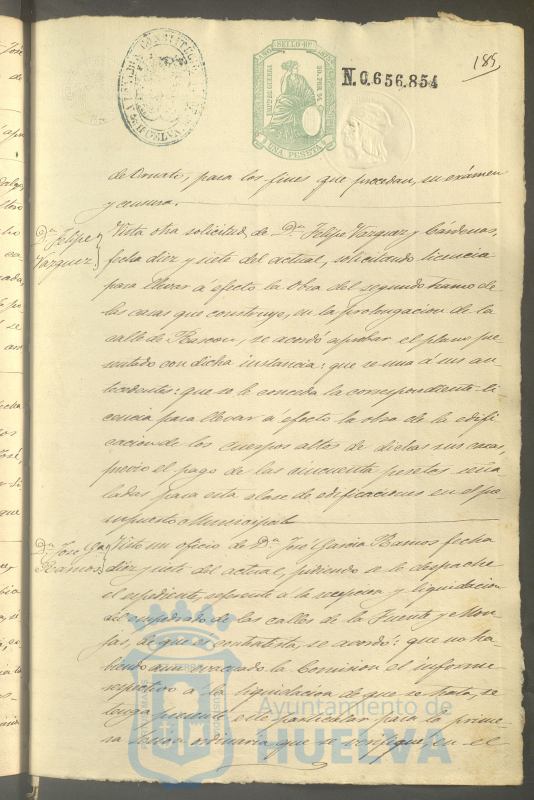 185
N.0.656.854
UNA PESETA
de Ornato, para los fines que procedan, su exámen
y censura.
Dn Felipe
Vazquez.
Vista otra solicitud, de Dn Felipe Vazquez y Cárdenas,
fecha diez y siete del actual, solicitando licencia
para llevar á efecto la obra del segundo tramo de
las casas que construye, en la prolongacion de la
calle de Rascon, se acordó aprobar el plano pre
sentado con dicha instancia: que se una á sus an
tecedentes: que se le conceda la correspondiente li
cencia para llevar á efecto la obra de la edifi
cacion de los cuerpos altos de dichas sus casas,
previo el pago de las cincuenta pesetas seña
ladas para esta clase de edificaciones en el pre
supuesto Municipal.
Dn José Ga
Ramos
Visto un oficio de Dn José Garcia Ramos fecha
diez y siete del actual, pidiendo se le despache
el espediente referente á la recepcion y liquidacion
del empedrado de las calles de la Fuente y Mon
jas, de que es contratista, se acordó: que no ha
biendo aun evacuado la Comision el informe
respectivo á la liquidacion de que se trata, se
tenga presente este particular para la prime
ra Sesion ordinaria que se verifique, en el
Ayuntamiento de
HUELVA